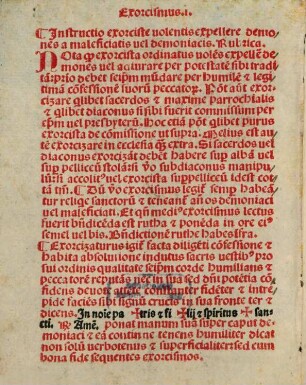 Exorcismus.i.
¶ Instructio exorciste volentis expellere demo
nes a maleficiatis vel demoniacis. Rubrica.
Nota qꝫ exorcista ordinatus volēs expellē de
mones vel adiurare per potestatē sibi tradi
tā: prīo debet seip̄m mūdare per humilē & legi
timā cōfessionē suorū peccatoꝝ. Pōt autē exor
cizare q̄libet sacerdos & maxime parrochialis
& q̄libet diaconus si sibi fuerit commissum per
ep̄m vel presbyterū. Hoc etiā pōt q̄libet purus
exorcista de cōmissione vt supra. Melius est au
tē exorcizare in ecclesia q̄ꝫ extra. Si sacerdos vel
diaconus exorcizāt debēt habere sup̄ albā vel
sup̄ pelliceū stolā: si vō subdiaconus manipu
lum
cottā
¶ Dū vō exorcismus legit̄ semp̄ habeā
tur relige sanctorū & teneant̄ añ os demoniaci
vel maleficiati. Et qñ medi⁹ exorcismus lectus
fuerit bñdicēda est rutha & ponēda in ore ei⁹
semel vel bis. Bñdictionē ruthe habes īfra.
¶ Exorcizaturus igit̄ facta diligēti cōfessione &
habita absolutione indutus sacris vestib⁹ pro
sui ordinis qualitate seip̄m corde humilians &
peccatorē reputās nec in sua sed dñi potētia cō
fidens deuote
faciēs signū crucis in sua fronte ter &
dicens. In noīe pa ✠ tris & fi ✠ lij & spiritus ✠ san
cti. ℟ Amē. ponat manum sua super caput de
moniaci & eā continue tenens humiliter dicat
non solū verbotenus & superficialiter sed cum
bona fide sequentes exorcismos.